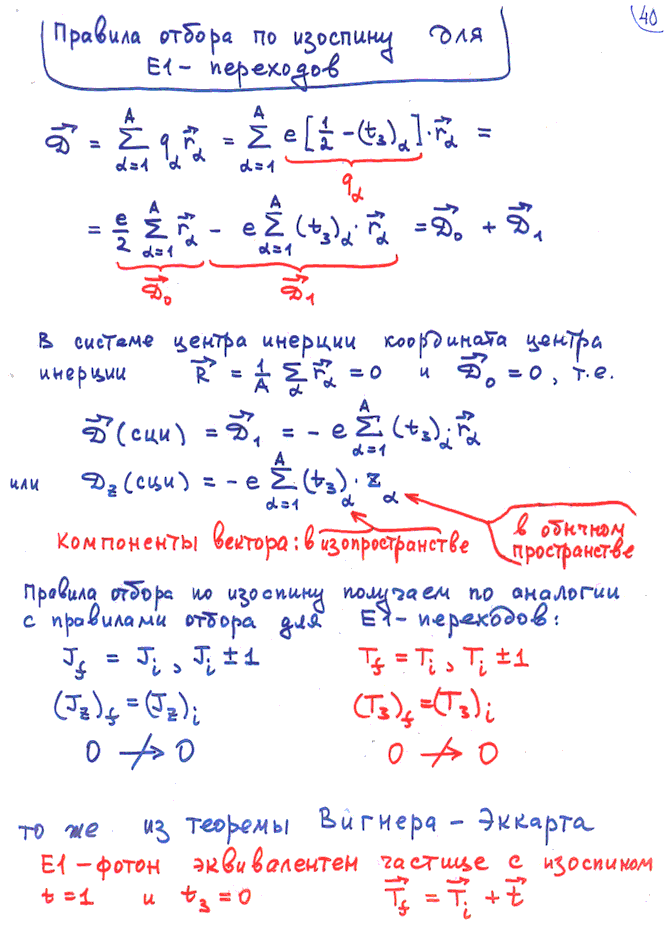 40
Правила отбора по изоспину для
E1 - переходов
$\vec{D} = \sum_{\alpha=1}^{A} q_\alpha \vec{r}_\alpha = \sum_{\alpha=1}^{A} e\left[\frac{1}{2} - (t_3)_\alpha\right] \cdot \vec{r}_\alpha =$
$q_\alpha$
$= \frac{e}{2} \sum_{\alpha=1}^{A} \vec{r}_\alpha - e \sum_{\alpha=1}^{A} (t_3)_\alpha \cdot \vec{r}_\alpha = \vec{D}_0 + \vec{D}_1$
$\vec{D}_0$ $\vec{D}_1$
В системе центра инерции координата центра
инерции $\vec{R} = \frac{1}{A} \sum_\alpha \vec{r}_\alpha = 0$ и $\vec{D}_0 = 0$, т.е.
$\vec{D}$(сци) $= \vec{D}_1 = - e \sum_{\alpha=1}^{A} (t_3)_\alpha \cdot \vec{r}_\alpha$
или $D_z$(сци) $= - e \sum_{\alpha=1}^{A} (t_3)_\alpha \cdot z_\alpha$
Компоненты вектора: в изопространстве
в обычном
пространстве
Правила отбора по изоспину получаем по аналогии
с правилами отбора для E1 - переходов:
$J_f = J_i, J_i \pm 1$ $T_f = T_i, T_i \pm 1$
$(J_z)_f = (J_z)_i$ $(T_3)_f = (T_3)_i$
$0 \not\to 0$ $0 \not\to 0$
то же из теоремы Вигнера - Эккарта
E1 - фотон эквивалентен частице с изоспином
$t = 1$ и $t_3 = 0$ $\vec{T}_f = \vec{T}_i + \vec{t}$